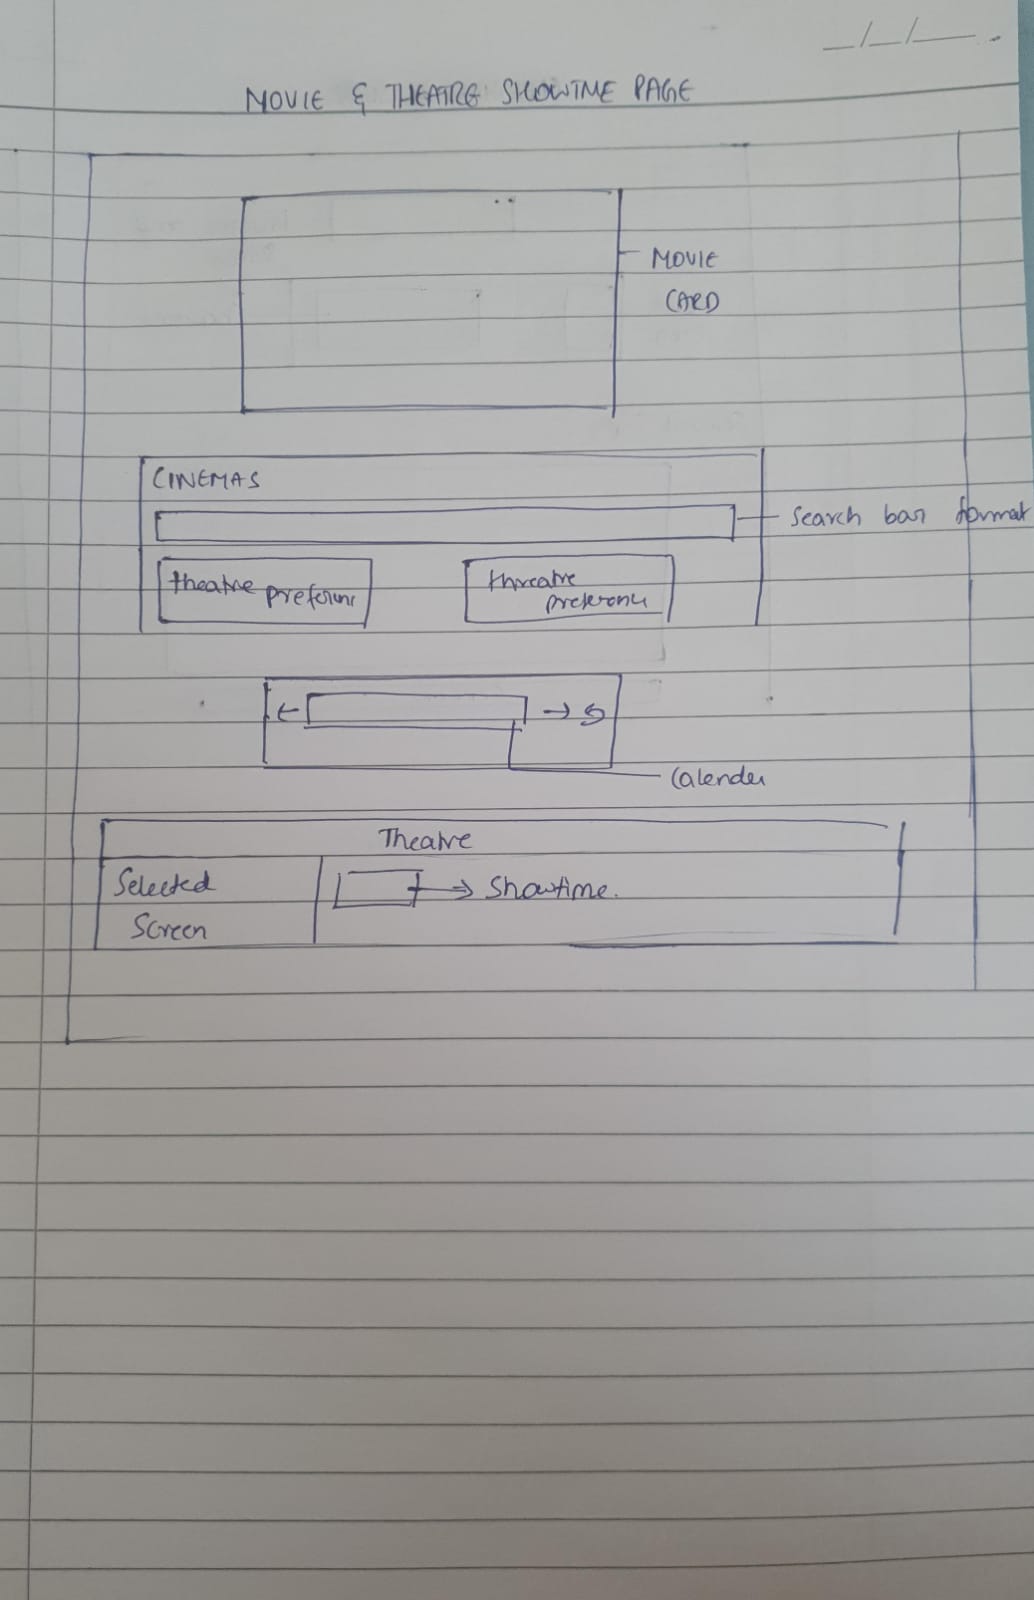 MOVIE & THEATRE SHOWTIME PAGE
MOVIE
CARD
CINEMAS
Search bar format
theatre preference
threatre
preference
Calender
Theatre
Selected
Screen
Showtime.